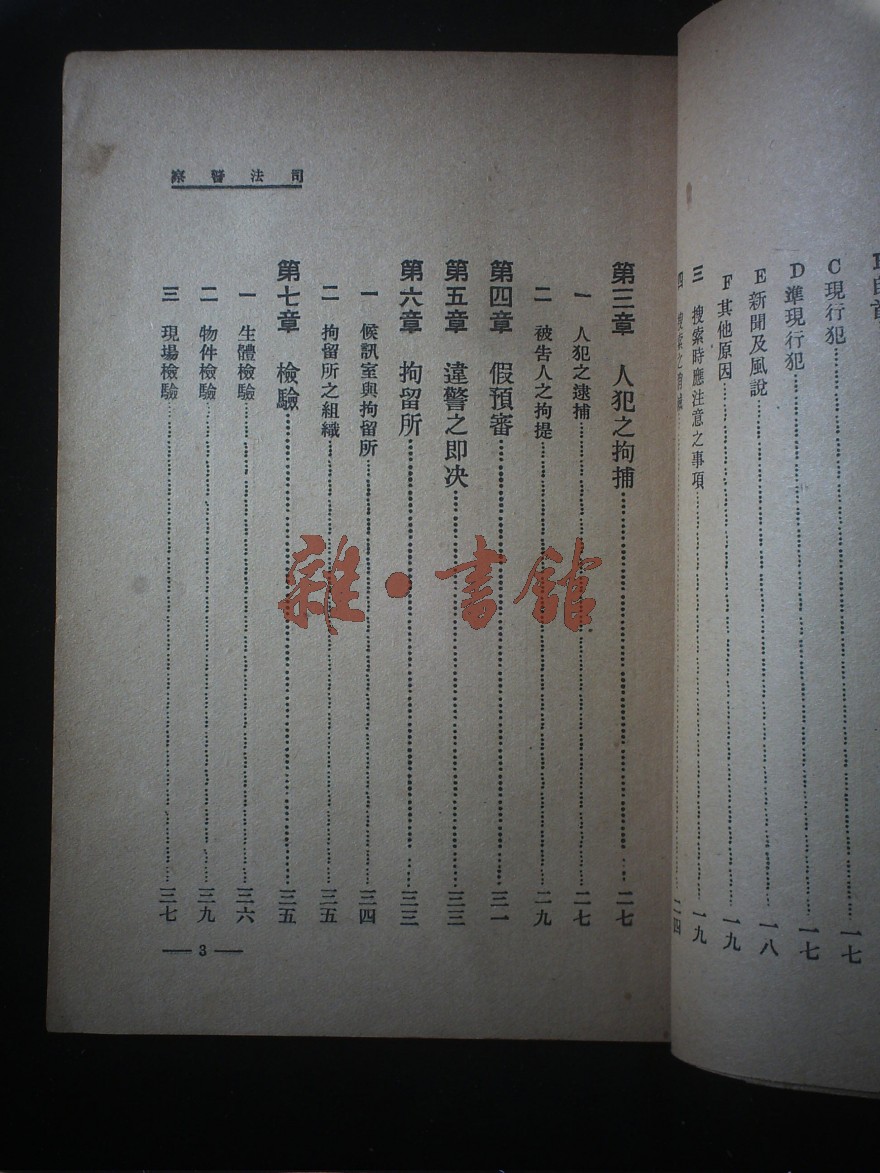 C現行犯……一七
D準現行犯……一七
E新聞及風說……一八
F其他原因……一九
三 搜索時應注意之事項……一九
四……二四
司法警察
第三章 人犯之拘捕……二七
一 人犯之逮捕……二七
二 被告人之拘提……二九
第四章 假預審……三一
第五章 違警之即決……三三
第六章 拘留所……三三
一 候訊室與拘留所……三四
二 拘留所之組織……三五
第七章 檢驗……三五
一 生體檢驗……三六
二 物件檢驗……三九
三 現場檢驗……三七
— 3 —
雜·書館